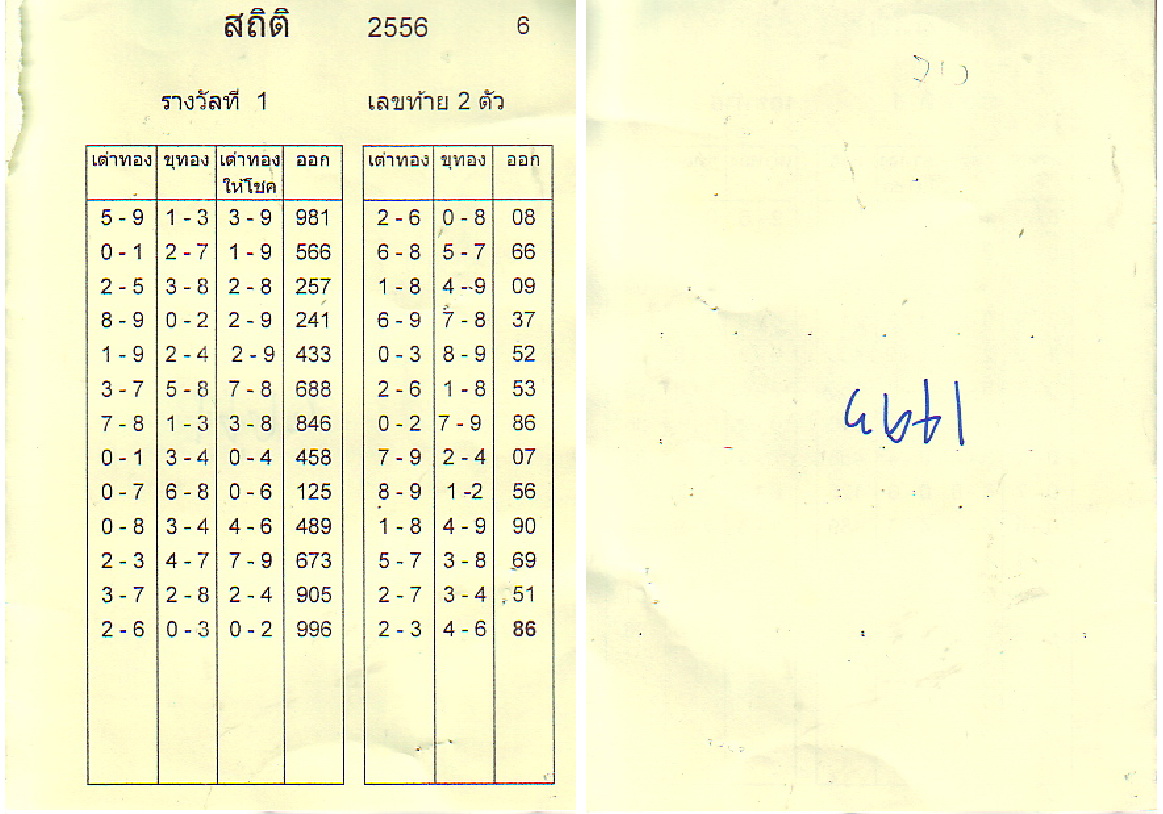 สถิติ 2556 6
รางวัลที่ 1 เลขท้าย 2 ตัว
เต่าทอง ขุทอง เต่าทอง ออก เต่าทอง ขุทอง ออก
ให้โชค
5 - 9 1 - 3 3 - 9 981 2 - 6 0 - 8 08
0 - 1 2 - 7 1 - 9 566 6 - 8 5 - 7 66
2 - 5 3 - 8 2 - 8 257 1 - 8 4 - 9 09
8 - 9 0 - 2 2 - 9 241 6 - 9 7 - 8 37
1 - 9 2 - 4 2 - 9 433 0 - 3 8 - 9 52
3 - 7 5 - 8 7 - 8 688 2 - 6 1 - 8 53
7 - 8 1 - 3 3 - 8 846 0 - 2 7 - 9 86
0 - 1 3 - 4 0 - 4 458 7 - 9 2 - 4 07
0 - 7 6 - 8 0 - 6 125 8 - 9 1 -2 56
0 - 8 3 - 4 4 - 6 489 1 - 8 4 - 9 90
2 - 3 4 - 7 7 - 9 673 5 - 7 3 - 8 69
3 - 7 2 - 8 2 - 4 905 2 - 7 3 - 4 51
2 - 6 0 - 3 0 - 2 996 2 - 3 4 - 6 86